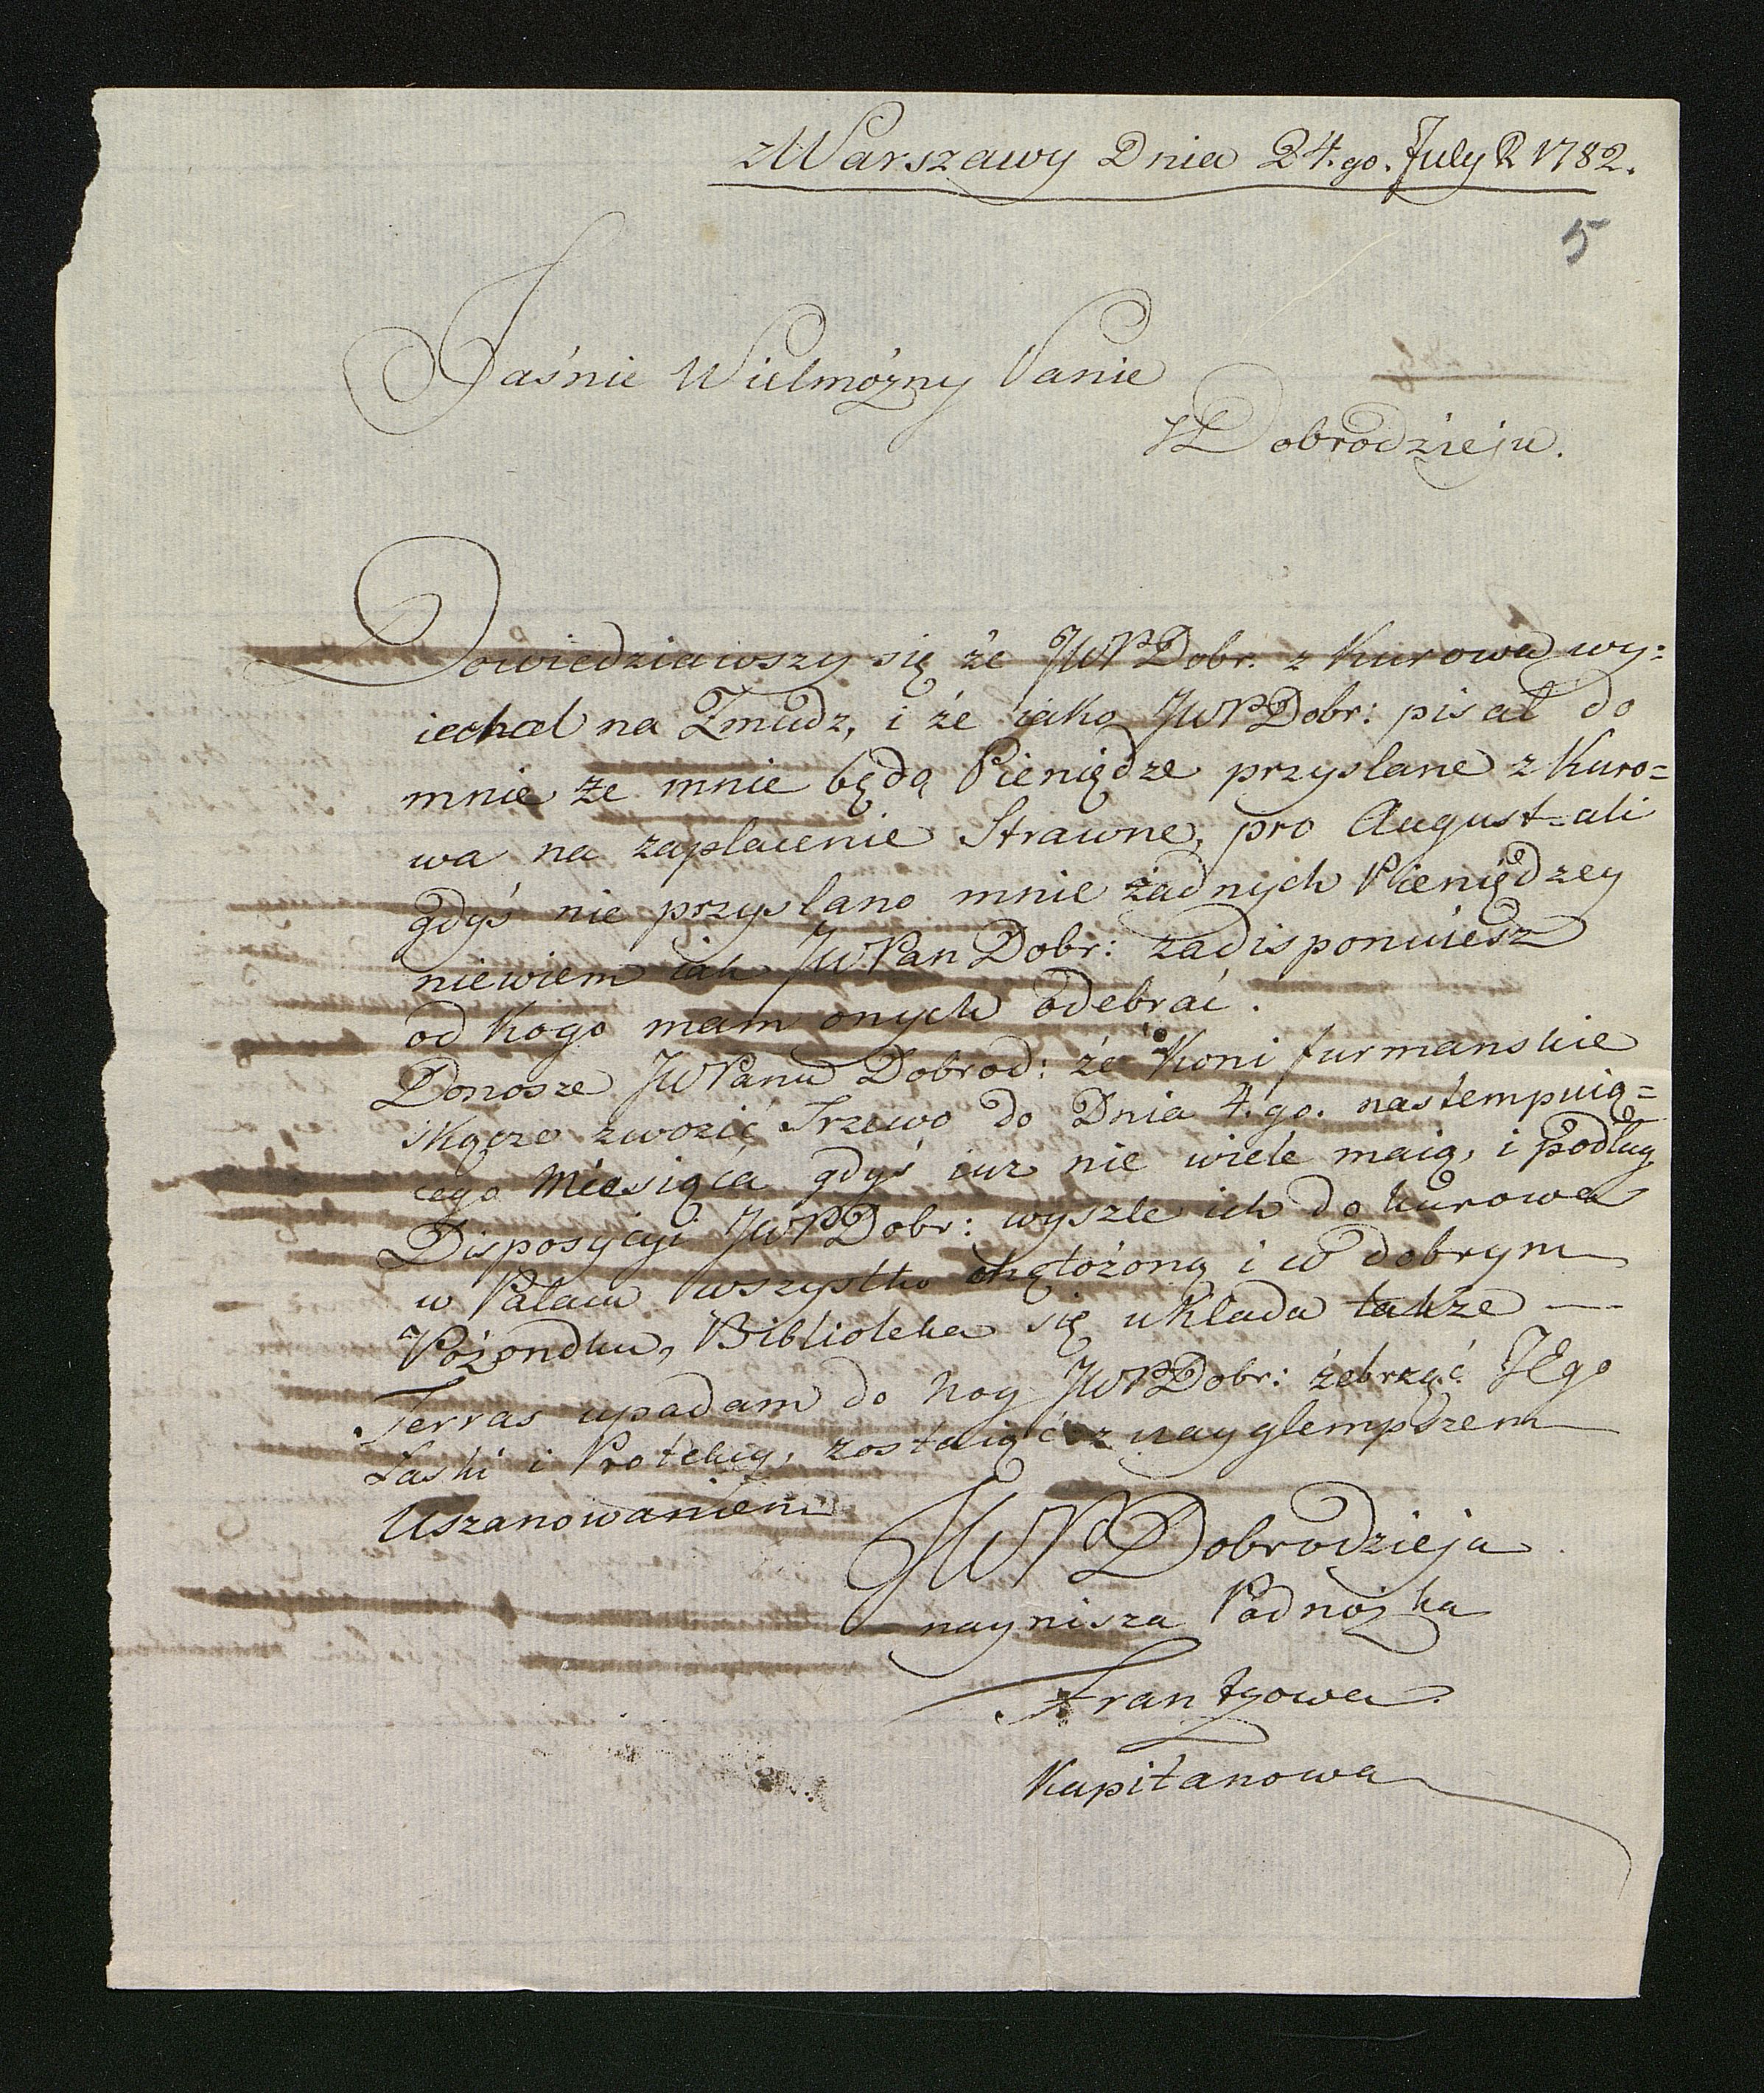 z Warszawy Dnia 24.go. July R 1782.
5
Jaśnie Wielmożny Panie
Dobrodzieju.
Dowiedziawszy się że JWPDobr. z Kurowa wy=
iechał na Zmudz, i że iako JWPDobr: pisał do
mnie że mnie będą Pieniędze przysłane z Kuro=
wa na zapłacenie Strawne, pro August=ali
gdyś nie przysłano mnie żadnych Pieniędzey
niewiem iak JWPan Dobr: zadisponuiesz
od Kogo mam onych odebrać.
Donosze JWPanu Dobrod: że Koni furmanskie
skącze zwozić Trzewo do Dnia 4.go. nastempuią=
cego Miesiąca gdyś iuz nie wiele maią, i podług
Disposycyi JWPDobr: wyszle ich do Kurowa
w Pałacu wszystko i w dobrym
Pożondku, Biblioteka się układa także —
Terras upadam do nog JWPDobr: żebrząć JEgo
Łaski i Protekcy, zostaiąć z nayglempszem
Uszanowaniem
JWPDobrodzieja
naynisza Podnożka
Frantzowa
Kapitanowa